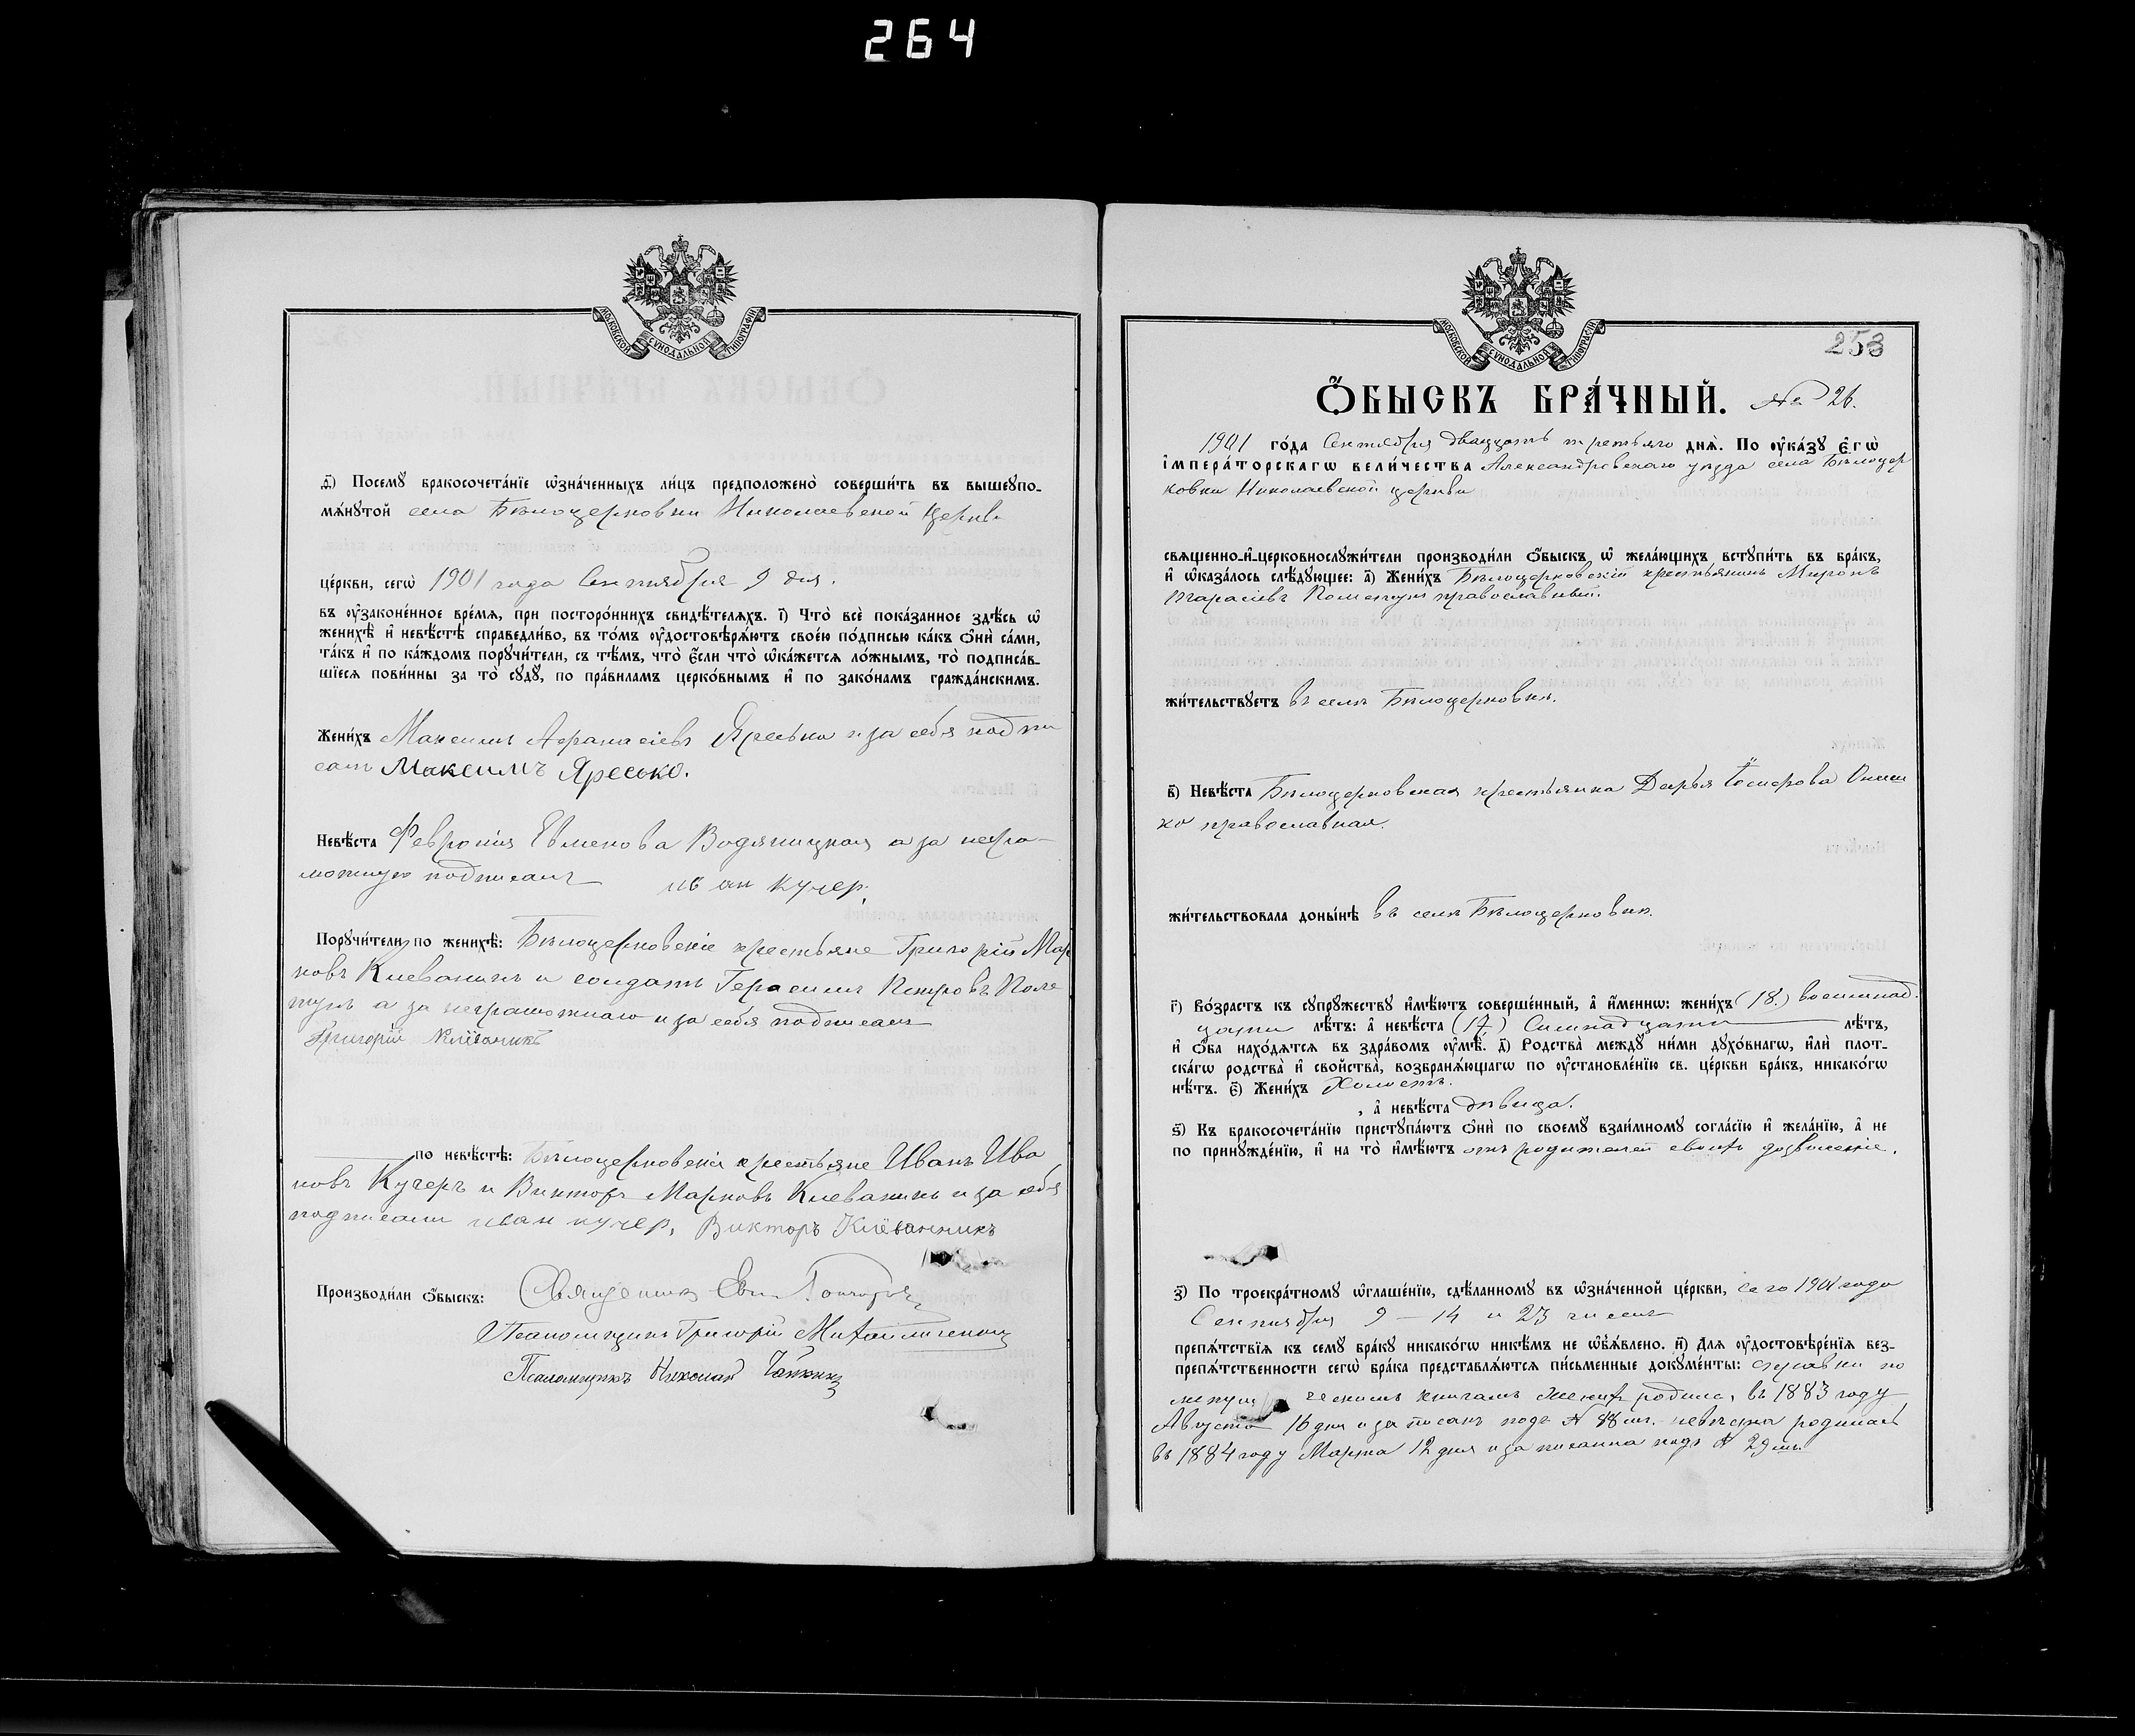 264
МОСКОВСКОЙ СѴНОДАЛЬНОЙ ТИПОГРАФІИ
ѳ҃) Посемꙋ̀ бракосочета́нїе ѡ҆зна́ченныхъ ли́цъ предположено̀ соверши́ть въ вышеꙋпо-
мѧ́нꙋтой села Бѣлоцерковки Николаевской церкви
це́ркви, сегѡ̀ 1901 года Сентября 9 дня.
въ ᲂу҆зако́ненное вре́мѧ, при посторо́ннихъ свидѣ́телѧхъ. і҃) Что̀ всѐ пока́занное здѣ́сь ѡ҆
женихѣ̀ и҆ невѣ́стѣ справедли́во, въ то́мъ ᲂу҆достовѣрѧ́ютъ свое́ю по́дписью ка́къ ѻ҆нѝ са́ми,
та́къ и҆ по ка́ждомъ порꙋчи́тели, съ тѣ́мъ, что̀ є҆́сли что̀ ѡ҆ка́жетсѧ ло́жнымъ, то̀ подписа́в-
шїесѧ пови́нны за то̀ сꙋдꙋ̀, по пра́виламъ церко́внымъ и҆ по зако́намъ гражда́нскимъ.
Жени́хъ Максимъ Афанасіевъ Яресько и за себя подпи
салъ Максимъ Яресько.
Невѣ́ста Феврoнія Евменова Водяницкая а за негра-
мотную подписалъ иван кучер,
Порꙋчи́тели по женихѣ̀: Бѣлоцерковскіе крестьяне Григорій Мар
ковъ Клеваникъ и солдатъ Герасимъ Петровъ Поле
тунъ а за неграмотнаго и за себя подписалъ
Григорій Клїваникъ
по невѣ́стѣ: Бѣлоцерковскіе крестьяне Иванъ Ива
новъ Кучеръ и Викторъ Марковъ Клеваникъ и за себя
подписали иван кучер, Викторъ Клїванникъ
Производи́ли ѻ҆́быскъ: Священникъ
Псаломщикъ Григорій
Псаломщикъ Николай
МОСКОВСКОЙ СѴНОДАЛЬНОЙ ТИПОГРАФІИ
253
Ѻ҆́БЫСКЪ БРА́ЧНЫЙ. № 26.
1901 го́да Сентября двадцать третьяго днѧ̀. По ᲂу҆ка́зꙋ є҆гѡ̀
і҆мпера́торскагѡ вели́чества Александровскаго уѣзда села Бѣлоцер
ковки Николаевской церкви
свѧщенно-и҆-церковнослꙋжи́тели производи́ли ѻ҆́быскъ ѡ҆ жела́ющихъ встꙋпи́ть въ бра́къ,
и҆ ѡ҆каза́лось слѣ́дꙋющее: а҃) Жени́хъ Бѣлоцерковскій крестьянинъ Миронъ
Тарасіевъ православный.
жи́тельствꙋетъ въ селѣ Бѣлоцерковкѣ.
в҃) Невѣ́ста Бѣлоцерковская крестьянка Дарья Ониш
ко православная.
жи́тельствовала доны́нѣ въ селѣ Бѣлоцерковкѣ.
г҃) Во́зрастъ къ сꙋпрꙋ́жествꙋ и҆мѣ́ютъ соверше́нный, а҆ и҆́меннѡ: жени́хъ (18.) восемнад-
цати лѣ́тъ: а҆ невѣ́ста (17.) Семнадцати лѣ́тъ,
и҆ ѻ҆́ба нахо́дѧтсѧ въ здра́вомъ ᲂу҆мѣ̀. д҃) Родства̀ междꙋ̀ ни́ми дꙋхо́внагѡ, и҆лѝ плот-
ска́гѡ родства̀ и҆ сво́йства, возбранѧ́ющагѡ по ᲂу҆становле́нїю св. це́ркви бра́къ, никако́гѡ
нѣ́тъ. є҃) Жени́хъ Холостъ.
, а҆ невѣ́ста дѣвица.
ѕ҃) Къ бракосочета́нїю пристꙋпа́ютъ ѻ҆нѝ по своемꙋ̀ взаи́мномꙋ согла́сїю и҆ жела́нїю, а҆ не
по принꙋжде́нїю, и҆ на то̀ и҆мѣ́ютъ отъ родителей своихъ дозволеніе.
з҃) По троекра́тномꙋ ѡ҆глаше́нїю, сдѣ́ланномꙋ въ ѡ҆зна́ченной це́ркви, сего 1901 года
Сентября 9 – 14 и 23 числъ
препѧ́тствїѧ къ семꙋ̀ бра́кꙋ никако́гѡ никѣ́мъ не ѡ҆б̾ѧ́влено. и҃) Длѧ ᲂу҆достовѣре́нїѧ без-
препѧ́тственности сегѡ̀ бра́ка представлѧ́ютсѧ пи́сьменные докꙋме́нты: справки по
ческимъ книгамъ женихъ родилс, въ 1883 году
Августа 16 дня и записанъ подъ № невѣста родилась
въ 1884 году Марта 12 дня и записанна подъ № 29мъ